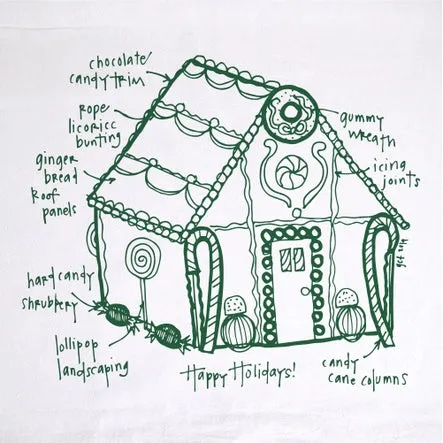 chocolate
candy trim
rope
licoricc
bunting
ginger
bread
Roof
panels
gummy
wreath
icing
joints
hard candy
shrubbery
lollipop
landscaping
Happy Holidays!
candy
cane columns